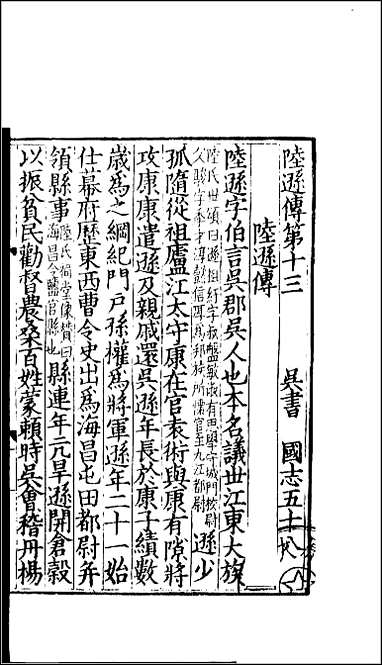 陸遜傳第十三　吳書　國志五十八
陸遜傳
陸遜字伯言吳郡吳人也本名議丗江東大族
陸氏世頌曰遜祖紆字叔盤敏淑有思學守城門校尉
父駿字季才淳懿信厚爲邦族所懷官至九江都尉
遜少
孤隨從祖廬江太守康在官袁術與康有隙將
攻康康遣遜及親戚還吳遜年長於康子績數
歲爲之綱紀門戶孫權爲將軍遜年二十一始
仕幕府歷東西曹令史出爲海昌屯田都尉并
領縣事
陸氏祠堂像贊曰
海昌今鹽官縣也
縣連年亢旱遜開倉糓
以振貧民勸督農桑百姓蒙賴時吳會稽丹楊